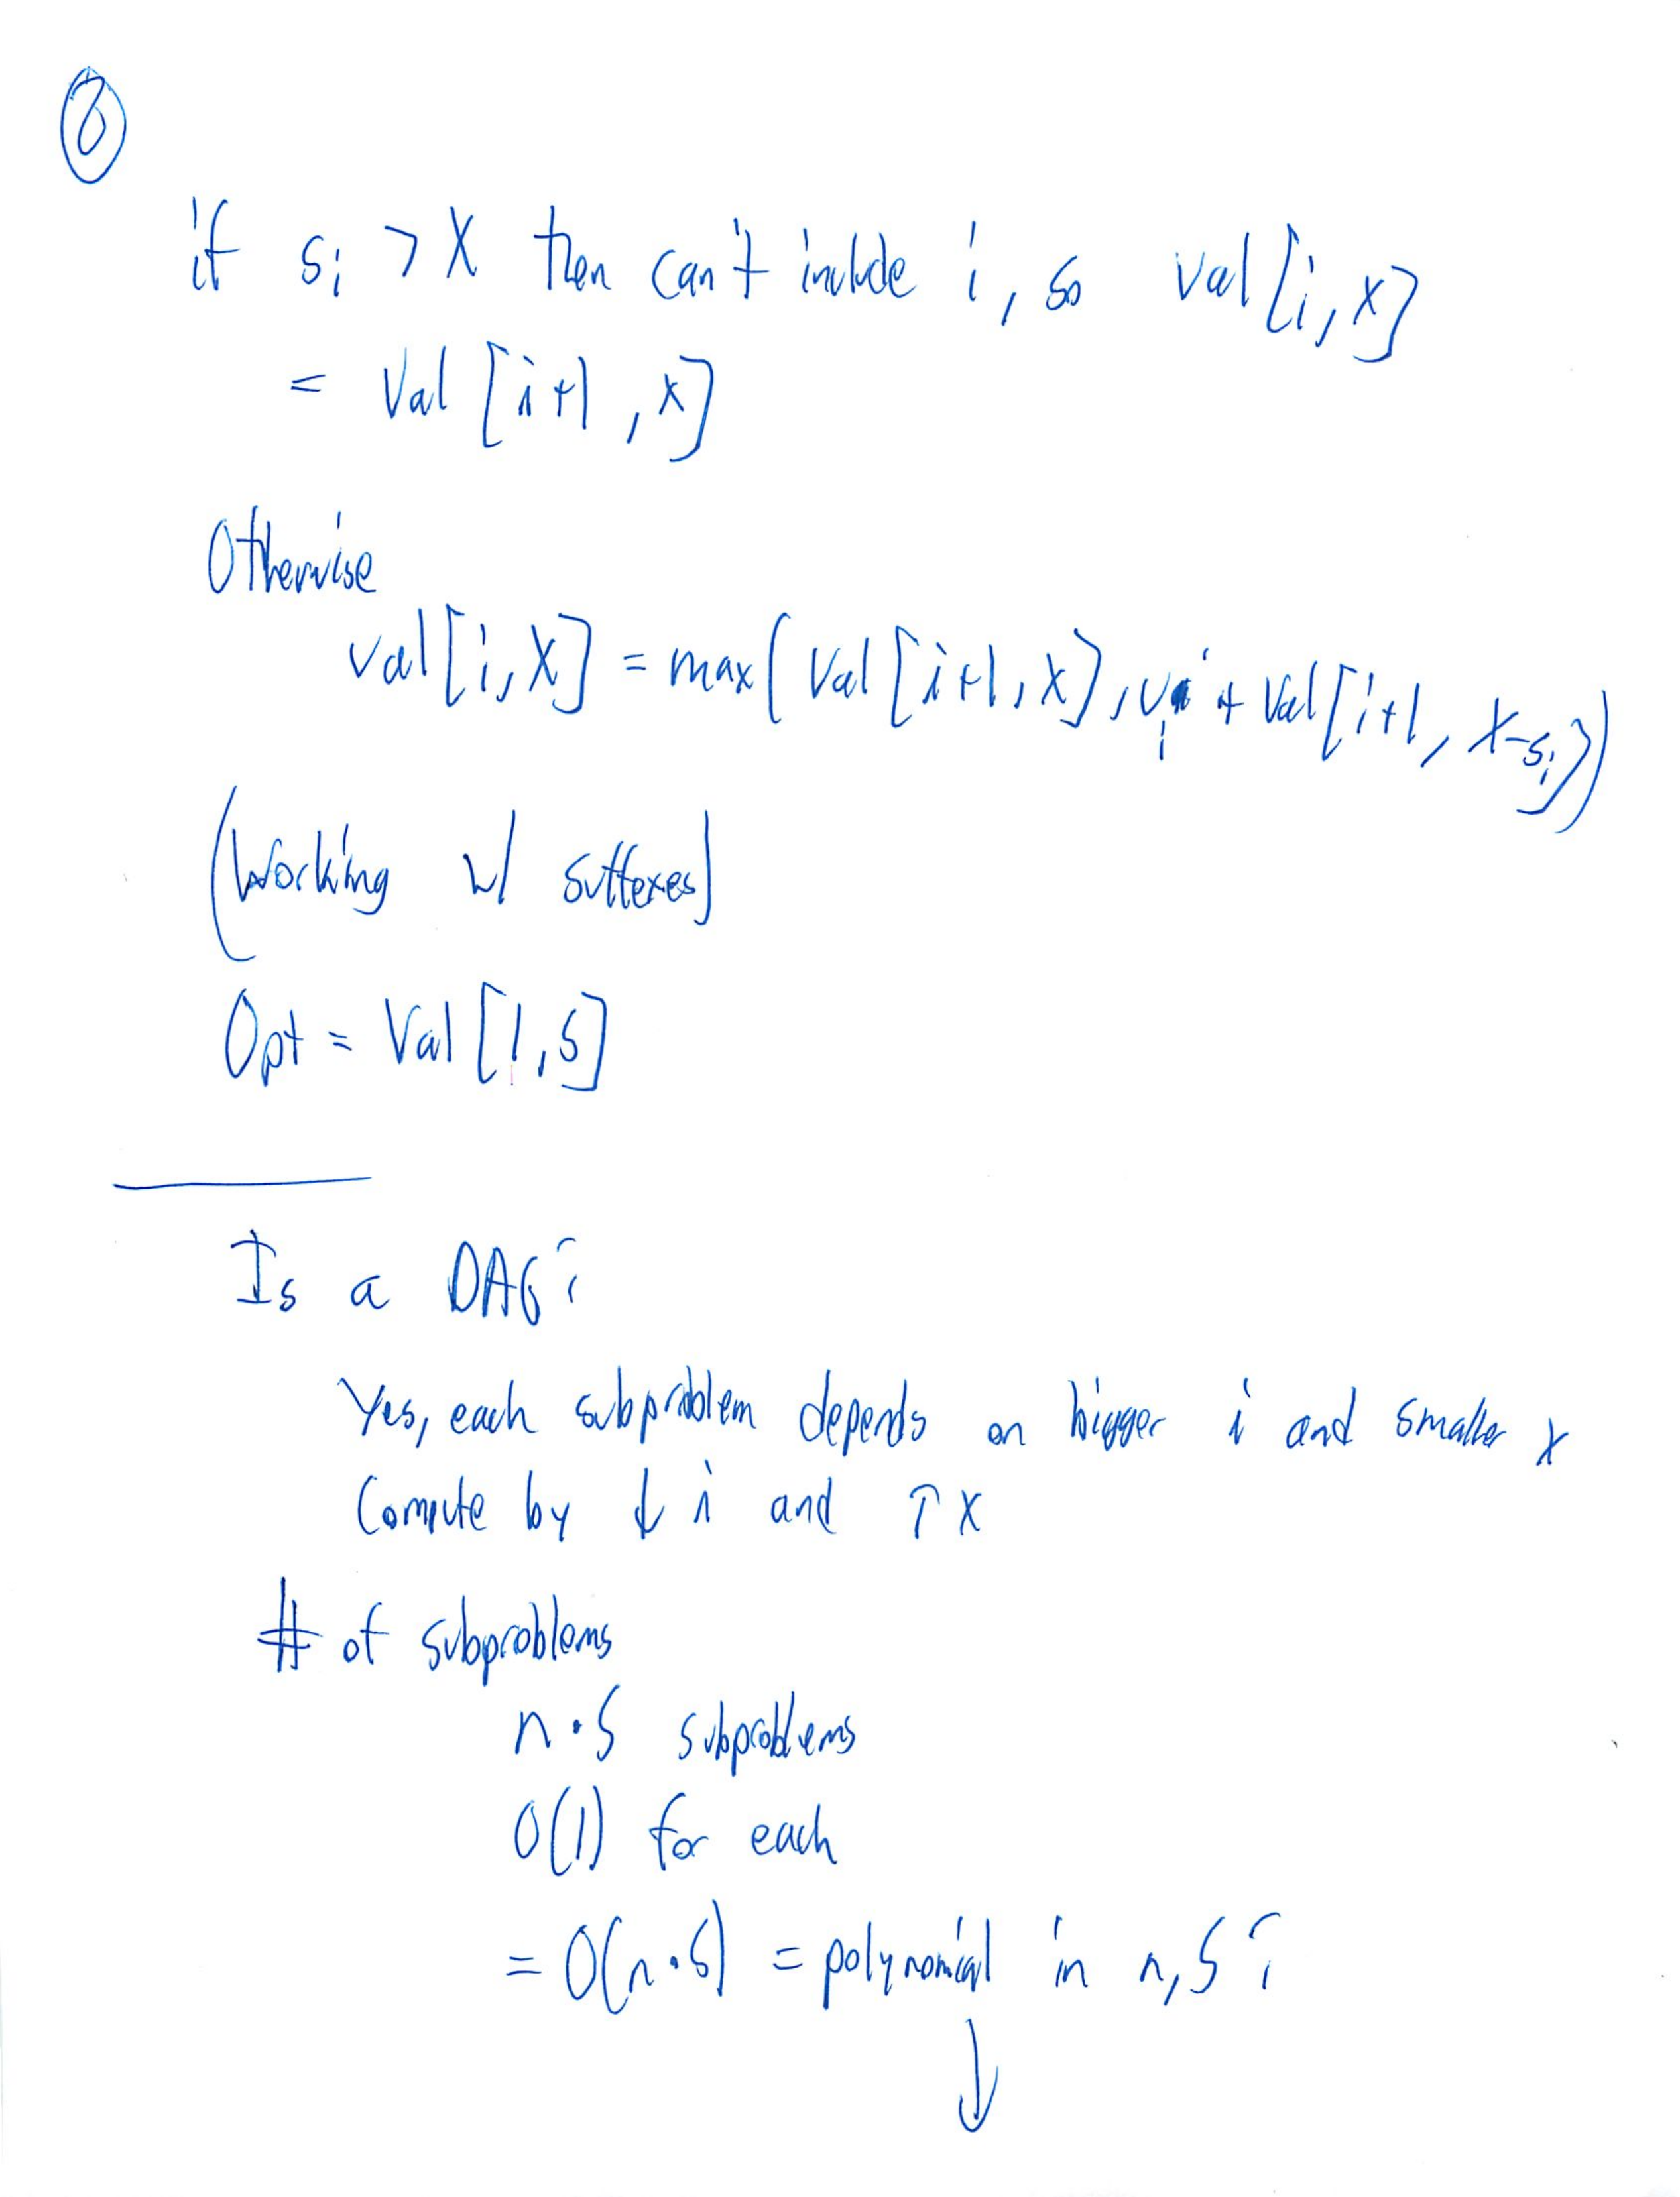 6
if si > X then can't include i, so val[i,X]
= Val [i+1, x]
Otherwise
val[i,X] = max( Val[i+1, x], vi + Val[i+1, X-si])
(Working w/ suffexes)
Opt = Val [1,S]
Is a DAG?
Yes, each subproblem depends on bigger i and smaller x
Compute by ↓ i and ↑ X
# of subproblems
n·S subproblems
O(1) for each
= O(n·S) = polynomial in n,S ?
↓